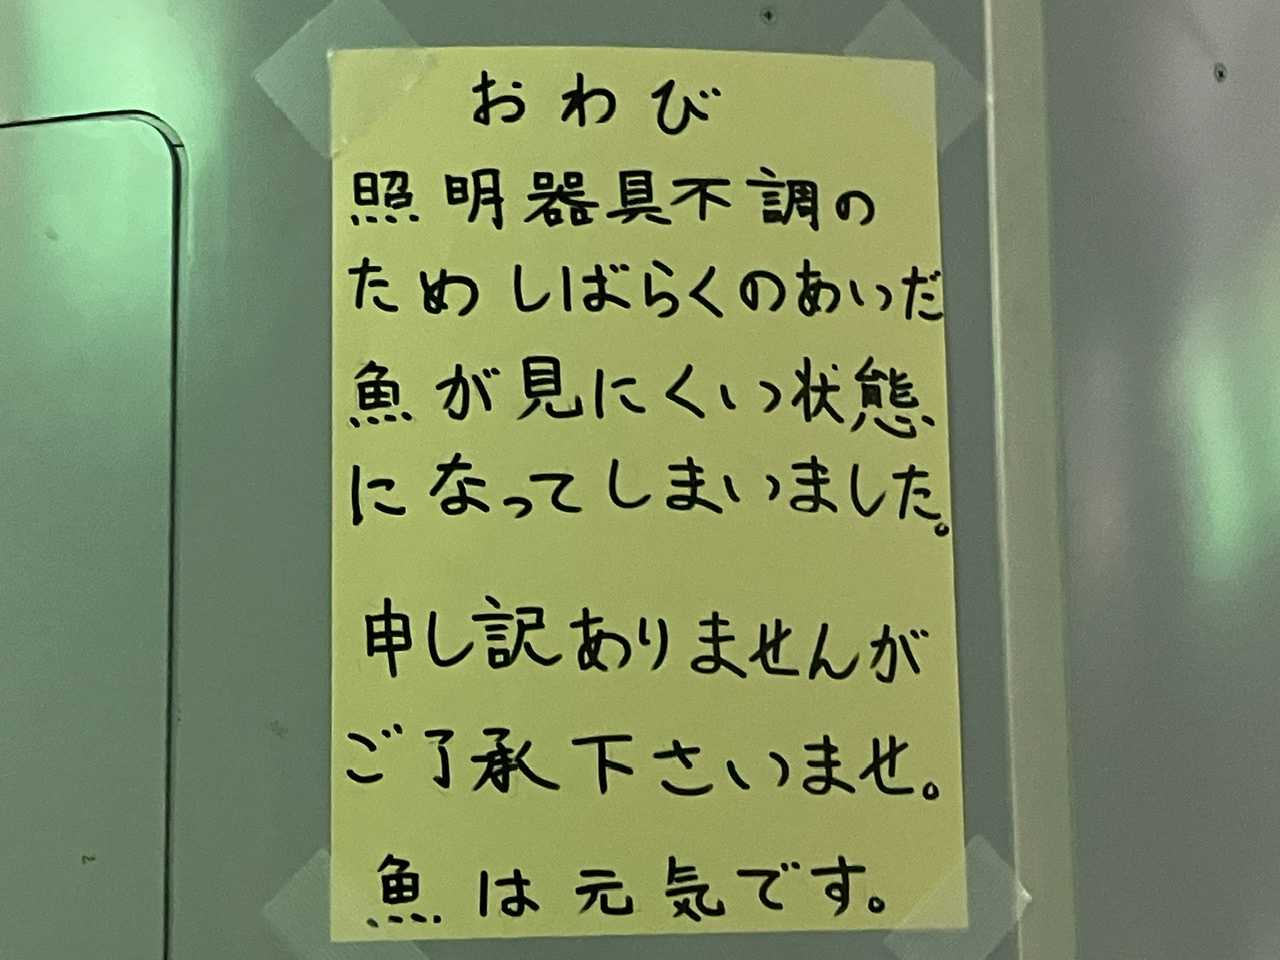 おわび
照明器具不調の
ためしばらくのあいだ
魚が見にくい状態
になってしまいました。
申し訳ありませんが
ご了承下さいませ。
魚は元気です。